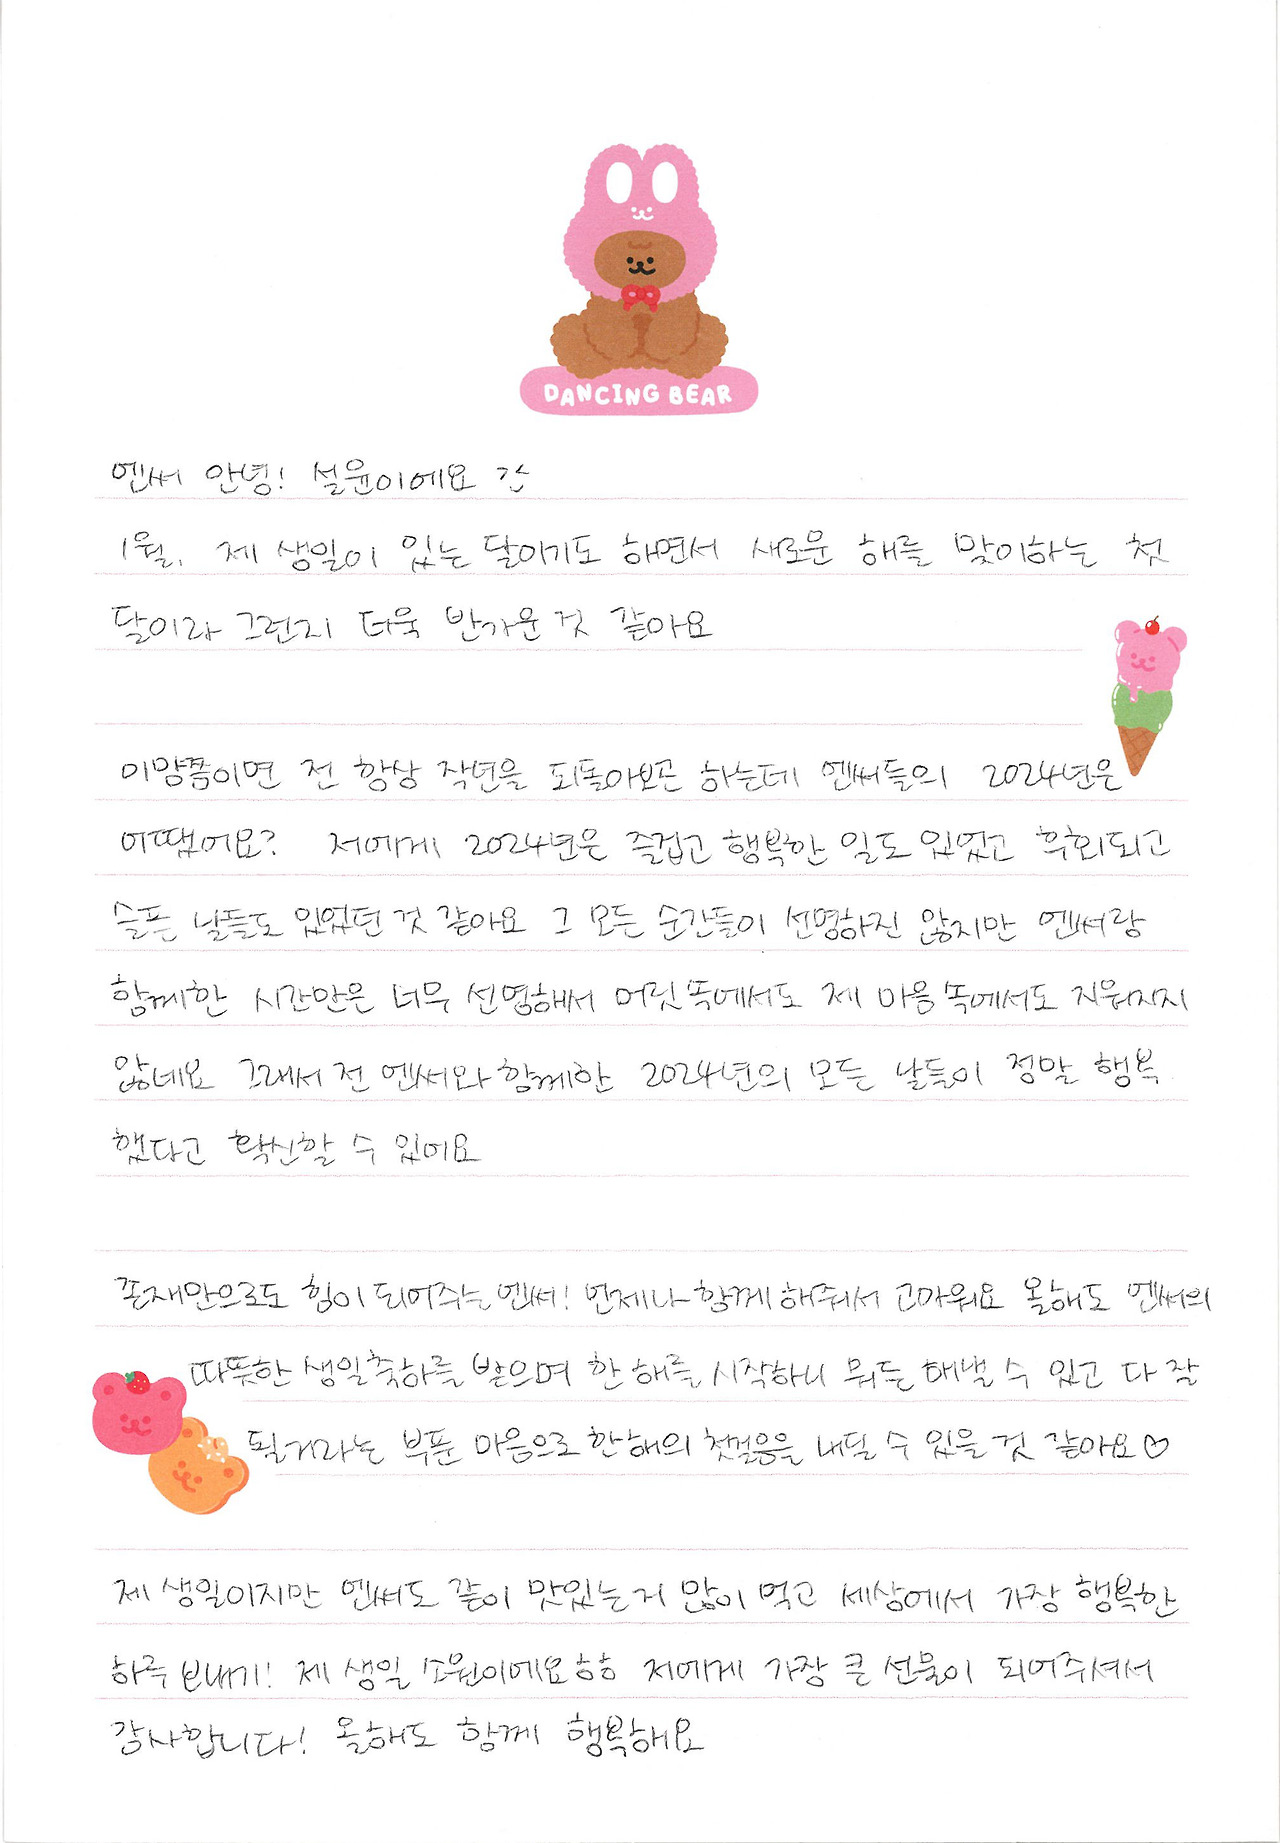 DANCING BEAR
엔써 안녕! 설윤이에요 간
1월. 제 생일이 있는 달이기도 하면서 새로운 해를 맞이하는 첫
달이라 그런지 더욱 반가운 것 같아요
이맘쯤이면 전 항상 작년을 되돌아보곤 하는데 엔써들의 2024년은
어땠어요? 저에게 2024년은 즐겁고 행복한 일도 있었고 후회되고
슬픈 날들도 있었던 것 같아요 그 모든 순간들이 선명하진 않지만 엔써랑
함께한 시간만은 너무 선명해서 머릿속에서도 제 마음속에서도 지워지지
않네요 그래서 전 엔써와 함께한 2024년의 모든 날들이 정말 행복
했다고 확신할 수 있어요
존재만으로도 힘이 되어주는 엔써! 언제나 함께 해줘서 고마워요 올해도 엔써의
따뜻한 생일축하를 받으며 한 해를 시작하니 뭐든 해낼 수 있고 다 잘
될거라는 부푼 마음으로 한해의 첫걸음을 내딜 수 있을 것 같아요♡
제 생일이지만 엔써도 같이 맛있는거 많이 먹고 세상에서 가장 행복한
하루 보내기! 제 생일 소원이에요ㅎㅎ 저에게 가장 큰 선물이 되어주셔서
감사합니다! 올해도 함께 행복해요